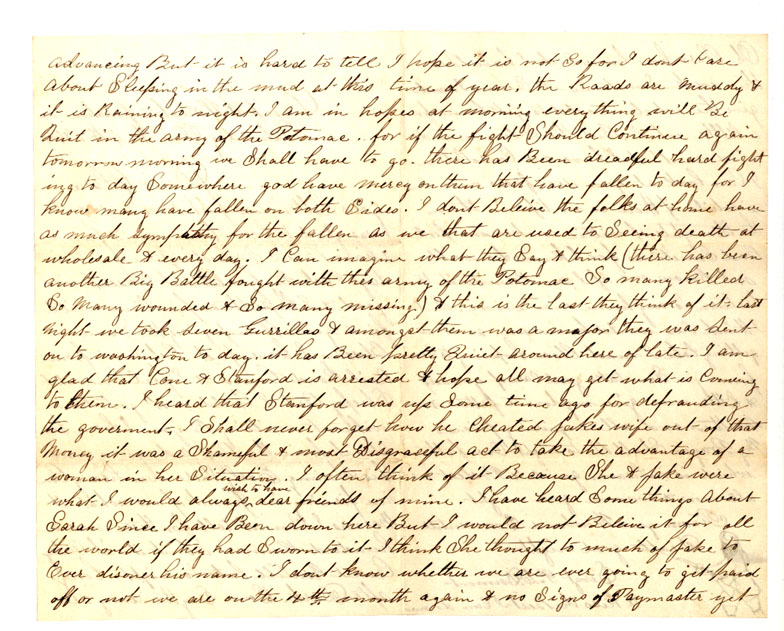 advancing But it is hard to tell I hope it is not So for I dont Care
About Sleeping in the mud at this time of year. the Roads are Muddy &
it is Raining to night. I am in hopes at morning everything will Be
Quit in the army of the Potomac. for if the fight Should Continue again
tomorrow morning we Shall have to go. there has Been dreadful hard fight
ing to day Somewhere god have mercy on them that have fallen to day for I
know many have fallen on both Sides. I dont Beleive the folks at home have
as much Sympathy for the fallen as we that are used to Seeing death at
wholesale & every day. I Can imagine what they Say & think (there has been
another Big Battle fought with thes army of the Potomac So many killed
So Many wounded & So many missing) & this is the last they think of it. last
night we took Seven Gurrillas & amongst them was a major they was Sent
on to washington to day. it has Been pretty Quiet around here of late. I am
glad that Cone & Stanford is arrested & hope all may get what is Coming
to them. I heard that Stanford was up Some time ago for defrauding
the goverment. I Shall never forget how he Cheated Jakes wife out of that
Money it was a Shameful & most Disgraseful act to take the advantage of a
woman in her Situation. I often think of it Because She & Jake were
what I would always wish to have dear friends of mine. I have heard Some things About
Sarah Since I have Been down here But I would not Beleive it for all
the world if they had Sworn to it I think She thought to much of Jake to
Ever disoner his name. I dont know whether we are ever going to get paid
off or not we are on the 4th month again & no Signs of Paymaster yet